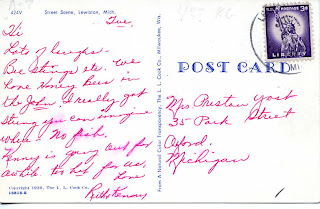 424V Street Scene, Lewiston, Mich.
Tue.
Hi
Lots of laughs.
Bee stings etc. We
have honey bees in
the John. I really got
stung you can imagine
where. No fish.
Kenny is going out for
awhile. too hot for us.
Love
Ruth & Kenny
Copyright 1956, The L. L. Cook Co.
From A Natural Color Transparency, The L. L. Cook Co., Milwaukee, Wis.
POST CARD
U.S. POSTAGE 3¢
LIBERTY
Mrs Preston Yost
35 Park Street
Oxford,
Michigan